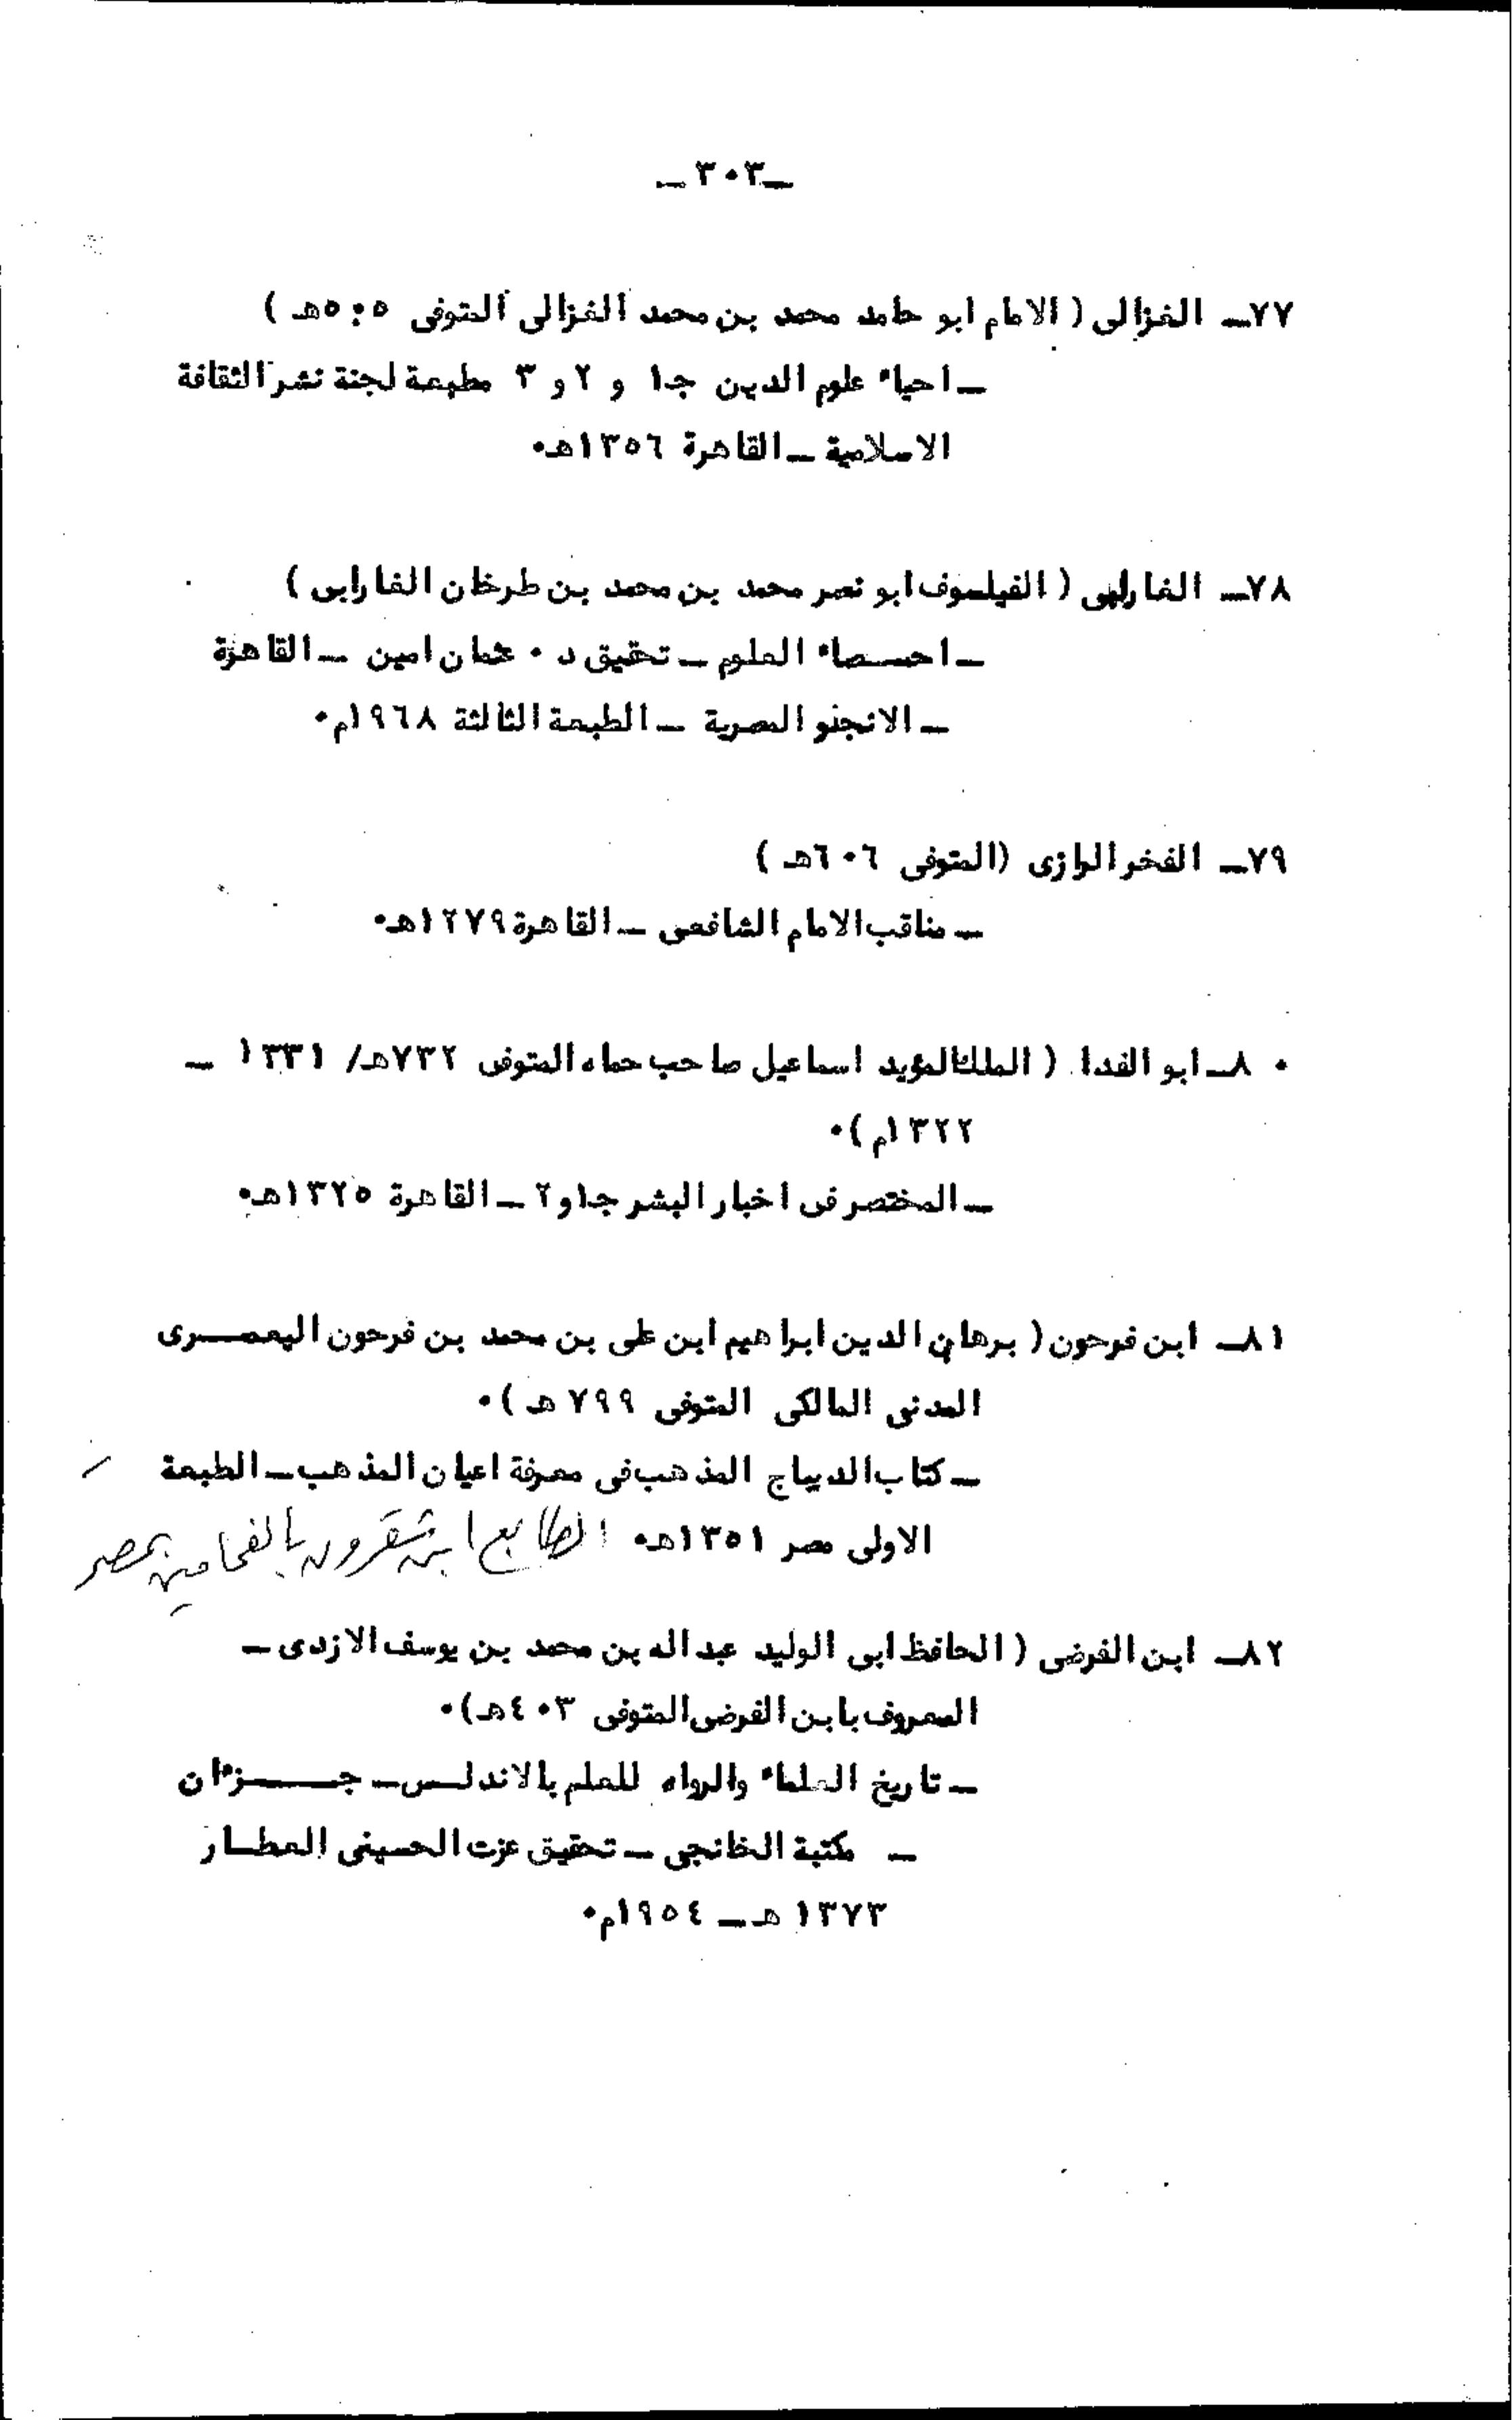 ـ٣٠٣ـ
٧٧ـ الغزالى ( الامام ابو حامد محمد بن محمد الغزالى المتوفى ٥٠٥هـ )
ـ احياء علوم الدين ج١ و ٢ و ٣ مطبعة لجنة نشر الثقافة
الاسلامية ـ القاهرة ١٣٥٦هـ٠
٧٨ـ الفارابى ( الفيلسوف ابو نصر محمد بن محمد بن طرخان الفارابى )
ـ احصاء العلوم ـ تحقيق د ٠ عثمان امين ـ القاهرة
ـ الانجلو المصرية ـ الطبعة الثالثة ١٩٦٨م٠
٧٩ـ الفخر الرازى (المتوفى ٦٠٦هـ )
ـ مناقب الامام الشافعى ـ القاهرة ١٢٧٩هـ٠
٨٠ـ ابو الفدا ( الملك المؤيد اسماعيل صاحب حماه المتوفى ٧٣٢هـ/ ١٣٣١ ـ
١٣٢٢م )٠
ـ المختصر فى اخبار البشر ج١ و٢ ـ القاهرة ١٣٢٥هـ٠
٨١ـ ابن فرحون ( برهان الدين ابراهيم ابن على بن محمد بن فرحون اليعمرى
المدنى المالكى المتوفى ٧٩٩ هـ )٠
ـ كتاب الديباج المذهب فى معرفة اعيان المذهب ـ الطبعة
الاولى مصر ١٣٥١هـ٠ الطابع ابن شقرون بالفحامين بمصر
٨٢ـ ابن الفرضى ( الحافظ ابى الوليد عبد الله بن محمد بن يوسف الازدى ـ
المعروف بابن الفرضى المتوفى ٤٠٣هـ)٠
ـ تاريخ العلماء والرواه للعلم بالاندلس ـ جزءان
ـ مكتبة الخانجى ـ تحقيق عزت الحسينى العطار
١٣٧٣ هـ ـ ١٩٥٤م٠